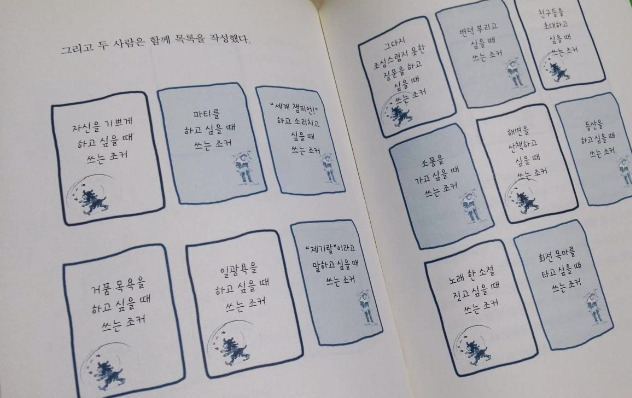 그리고 두 사람은 함께 목록을 작성했다.
자신을 기쁘게
하고 싶을 때
쓰는 조커
파티를
하고 싶을 때
쓰는 조커
"세계 챔피언!"
하고 소리치고
싶을 때
쓰는 조커
거품 목욕을
하고 싶을 때
쓰는 조커
일광욕을
하고 싶을 때
쓰는 조커
"제기랄"이라고
말하고 싶을 때
쓰는 조커
그다지
조심스럽지 못한
질문을 하고
싶을 때
쓰는 조커
변덕 부리고
싶을 때
쓰는 조커
친구들을
초대하고
싶을 때
쓰는 조커
소풍을
가고 싶을 때
쓰는 조커
해변을
산책하고
싶을 때
쓰는 조커
등산을
하고 싶을 때
쓰는 조커
노래 한 소절
짓고 싶을 때
쓰는 조커
회전 목마를
타고 싶을 때
쓰는 조커